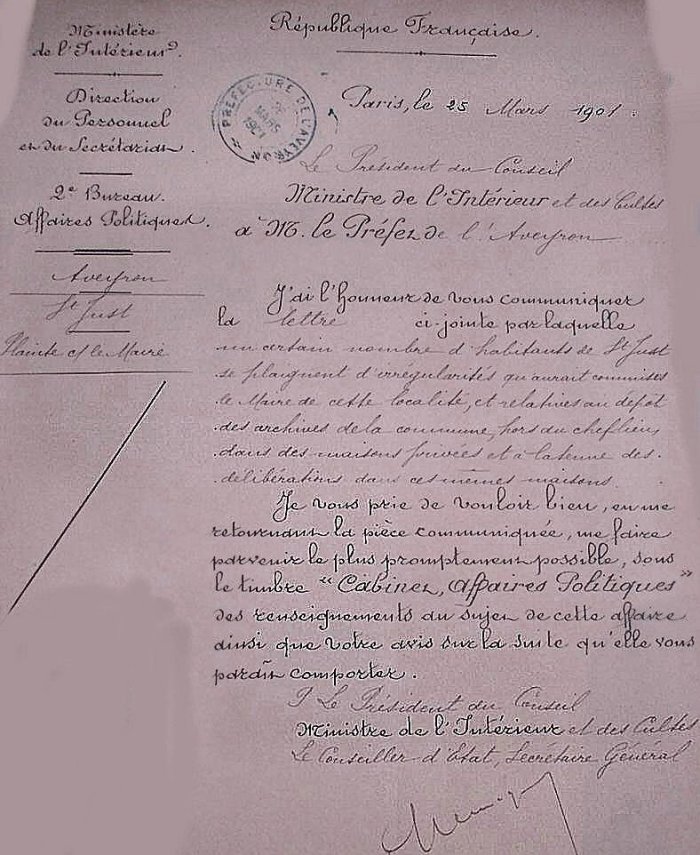 Ministère
de l'Intérieur.
Direction
du Personnel
et du Secrétariat.
2e Bureau.
Affaires Politiques.
Aveyron
St Just
Plainte c/ le Maire
République Française.
PRÉFECTURE DE L'AVEYRON
26
MARS
1901
Paris, le 25 Mars 1901.
Le Président du Conseil
Ministre de l'Intérieur et des Cultes
à M. le Préfet de l'Aveyron
J'ai l'honneur de vous communiquer
la lettre ci-jointe par laquelle
un certain nombre d'habitants de St Just
se plaignent d'irrégularités qu'aurait commises
le Maire de cette localité, et relatives au dépôt
des archives de la commune, hors du chef lieu,
dans des maisons privées et à la tenue des
délibérations dans ces mêmes maisons.
Je vous prie de vouloir bien, en me
retournant la pièce communiquée, me faire
parvenir le plus promptement possible, sous
le timbre "Cabinet, Affaires Politiques"
des renseignements au sujet de cette affaire
ainsi que votre avis sur la suite qu'elle vous
paraît comporter.
P Le Président du Conseil
Ministre de l'Intérieur et des Cultes
Le Conseiller d'Etat, Secrétaire Général